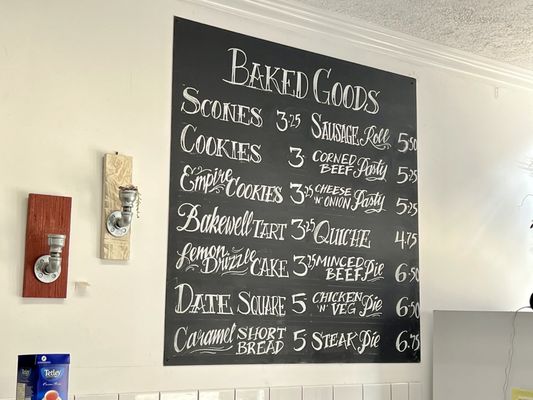 BAKED GOODS
SCONES 3.25
COOKIES 3
Empire COOKIES 3.25
Bakewell TART 3.25
Lemon Drizzle CAKE 3.25
DATE SQUARE 5
Caramel SHORT BREAD 5
SAUSAGE Roll 5.50
CORNED BEEF Pasty 5.25
CHEESE 'N' ONION Pasty 5.25
QUICHE 4.75
MINCED BEEF Pie 6.50
CHICKEN 'N' VEG Pie 6.50
STEAK Pie 6.75
Tetley